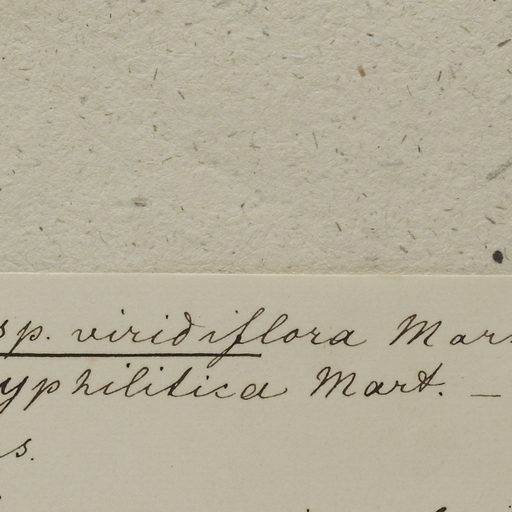 sp. viridiflora Mar
yphilitica Mart. —
s.